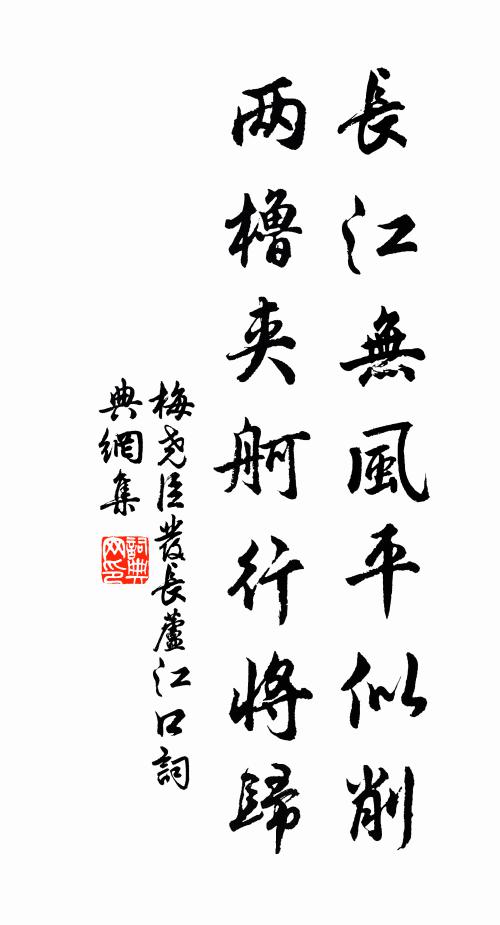 長江無風平似削
两櫓夾舸行將歸
梅堯臣發長蘆江口詞
典網集
詞典
网印